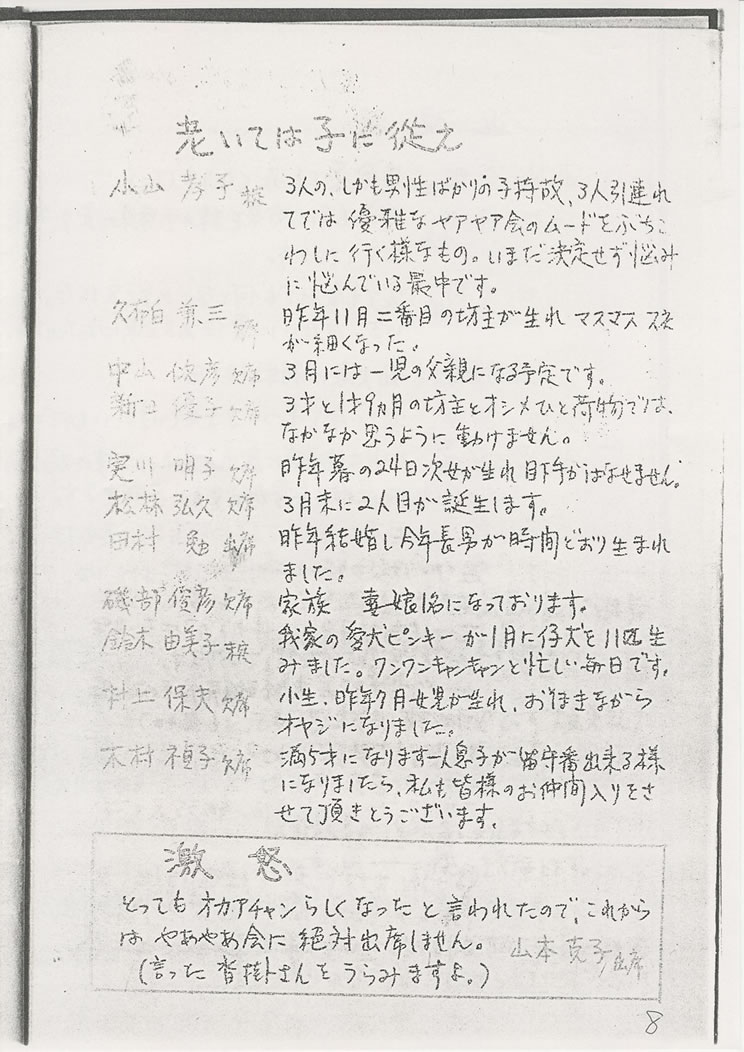 老いては子に従え
小山 孝子 3人の、しかも男性ばかりの子持故、3人引連れ
てでは 優雅なヤアヤア会のムードをぶちこ
わしに行く様なもの。いまだ決定せず悩み
に悩んでいる最中です。
三 欠席 昨年11月二番目の坊主が生れ マスマス
が細くなった。
中山 俊彦 欠席 3月には一児の父親になる予定です。
優子 欠席 3才と1才9ヵ月の坊主とオシメひと荷物では、
なかなか思うように動けません。
明子 欠席 昨年暮の24日次女が生れ目下手がはなせません。
松林 弘久 欠席 3月末に2人目が誕生します。
田村 勉 出席 昨年結婚し今年長男が時間どおり生まれ
ました。
磯部 俊彦 欠席 家族 妻娘1名になっております。
鈴木 由美子 我家の愛犬ピンキーが1月に仔犬を11匹生
みました。ワンワンキャンキャンと忙しい毎日です。
井上 保夫 欠席 小生、昨年7月女児が生れ、おそまきながら
オヤジになりました。
木村 禎子 欠席 満5才になります一人息子が留守番出来る様
になりましたら、私も皆様のお仲間入りをさ
せて頂きとうございます。
激 怒
とってもオカアチャンらしくなったと言われたので、これから
は やあやあ会に絶対出席しません。
山本 克子 出席
(言った沓掛さんをうらみますよ。)
8